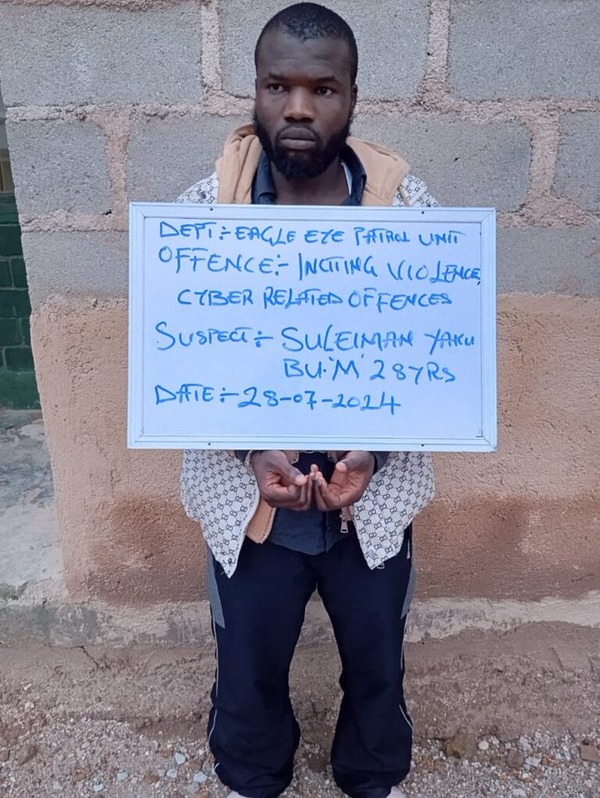 DEPT:- EAGLE EYE PATROL UNIT
OFFENCE:- INCITING VIOLENCE,
CYBER RELATED OFFENCES
SUSPECT:- SULEIMAN YAKU
BU. 'M' 28YRS
DATE:- 28-07-2024